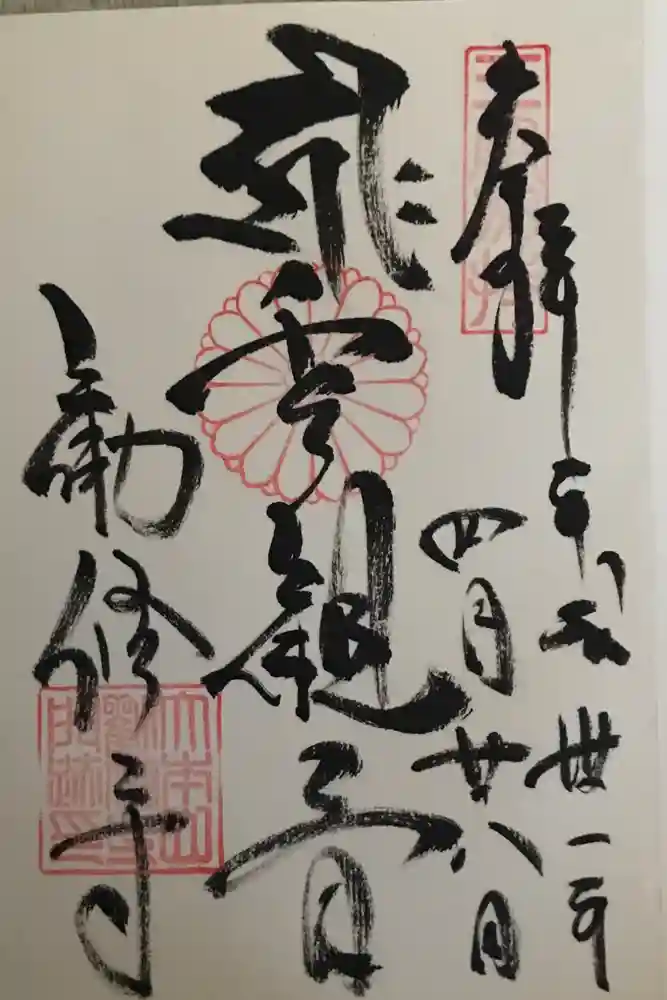 奉拝 平成卅一年
四月廿八日
飛雲観音
勧修寺
大本山